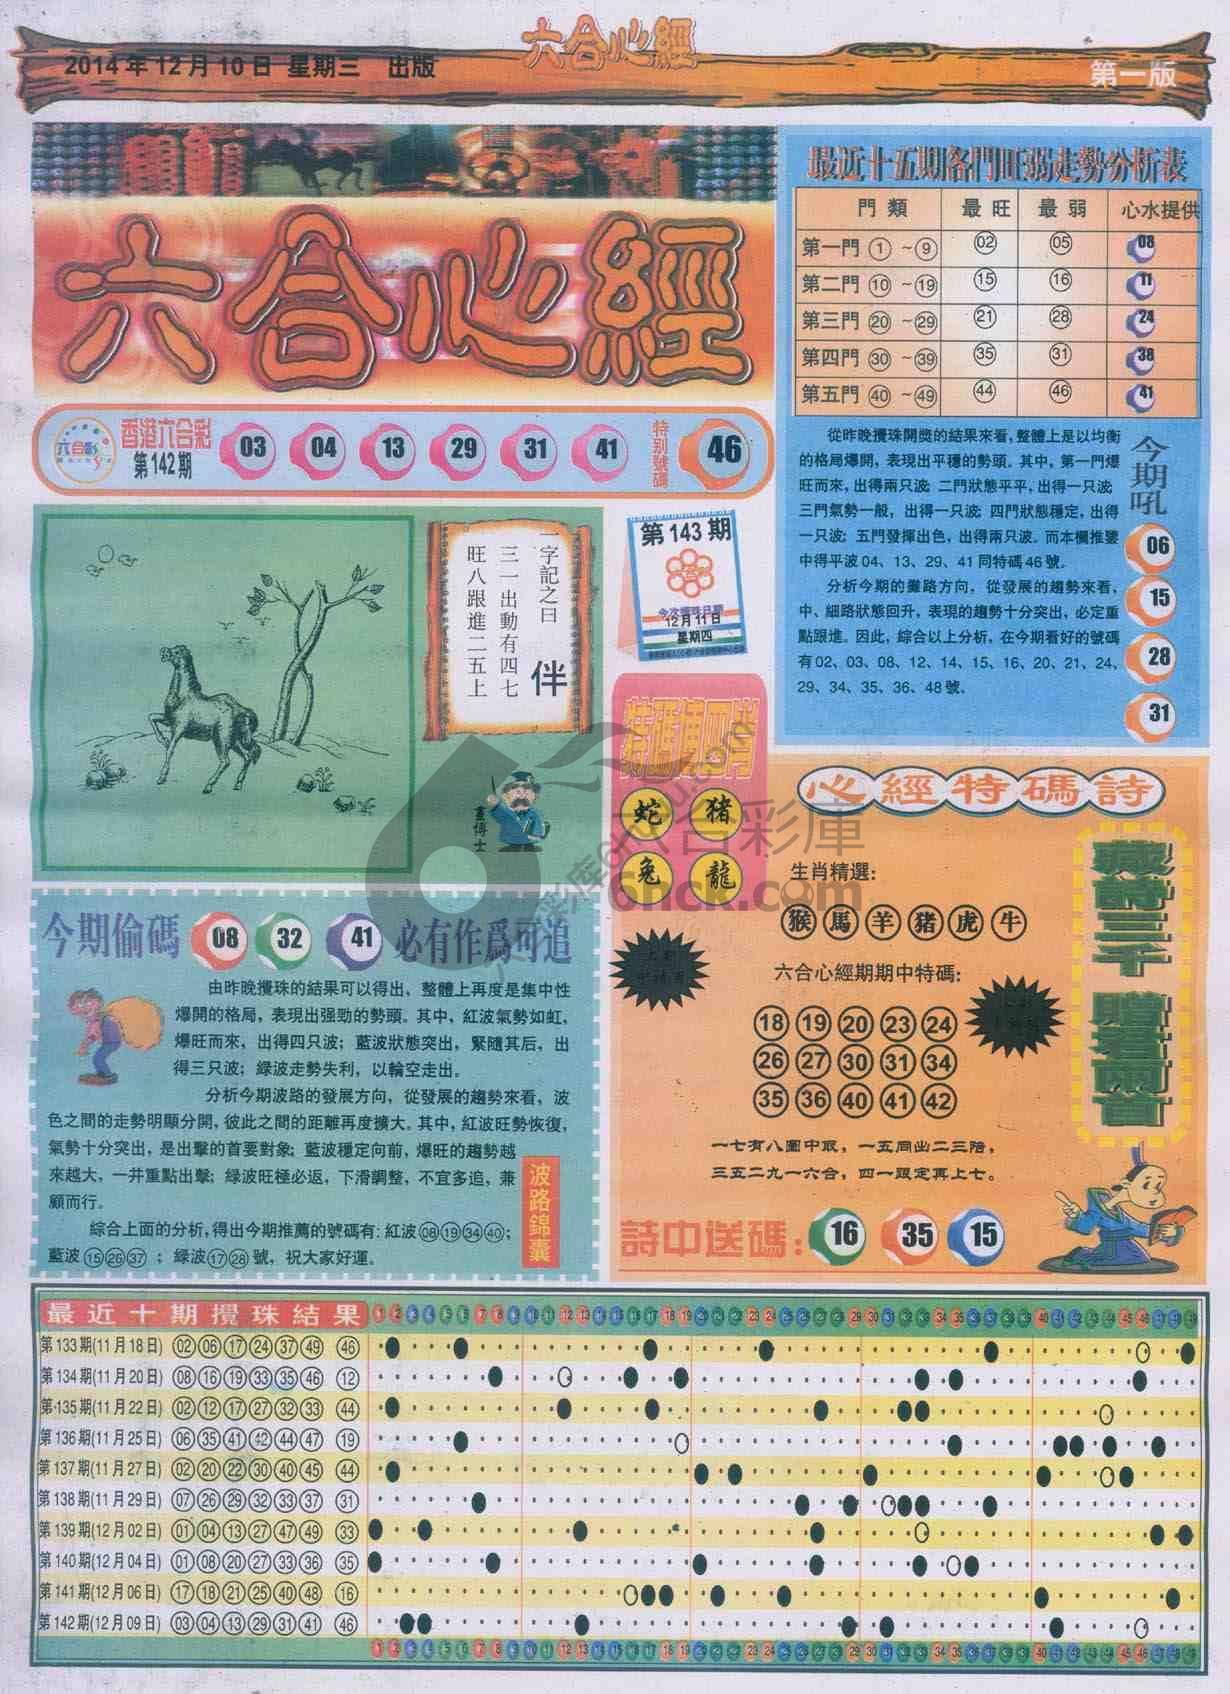 六合心經
2014年12月10日 星期三 出版
第一版
六合心經
香港六合彩
第142期
03 04 13 29 31 41
特別號碼
46
最近十五期各門旺弱走勢分析表
門類 最旺 最弱 心水提供
第一門 ①～⑨ 02 05 08
第二門 ⑩～⑲ 15 16 11
第三門 ⑳～㉙ 21 28 24
第四門 ㉚～㊴ 35 31 38
第五門 ㊵～㊾ 44 46 41
從昨晚攪珠開獎的結果來看,整體上是以均衡
的格局爆開,表現出平穩的勢頭。其中,第一門爆
旺而來,出得兩只波;二門狀態平平,出得一只波;
三門氣勢一般,出得一只波;四門狀態穩定,出得
一只波;五門發揮出色,出得兩只波。而本欄推鑒
中得平波04、13、29、41同特碼46號。
分析今期的攤路方向,從發展的趨勢來看,
中、細路狀態回升,表現的趨勢十分突出,必定重
點跟進。因此,綜合以上分析,在今期看好的號碼
有02、03、08、12、14、15、16、20、21、24、
29、34、35、36、48號。
今期吼
06
15
28
31
一字記之曰 伴
三一出動有四七
旺八跟進二五上
畫博士
第143期
今次攪珠日期
12月11日
星期四
特碼博四肖
蛇 豬
兔 龍
六合彩庫
6hck.com
今期偷碼 08 32 41 必有作爲可追
由昨晚攪珠的結果可以得出,整體上再度是集中性
爆開的格局,表現出强勁的勢頭。其中,紅波氣勢如虹,
爆旺而來,出得四只波;藍波狀態突出,緊隨其后,出
得三只波;綠波走勢失利,以輪空走出。
分析今期波路的發展方向,從發展的趨勢來看,波
色之間的走勢明顯分開,彼此之間的距離再度擴大。其中,紅波旺勢恢復,
氣勢十分突出,是出擊的首要對象;藍波穩定向前,爆旺的趨勢越
來越大,一并重點出擊;綠波旺極必返,下滑調整,不宜多追,兼
顧而行。
綜合上面的分析,得出今期推薦的號碼有:紅波08 19 34 40;
藍波15 26 37;綠波17 28號,祝大家好運。
波路錦囊
心經特碼詩
生肖精選:
猴 馬 羊 豬 虎 牛
六合心經期期中特碼:
18 19 20 23 24
26 27 30 31 34
35 36 40 41 42
一七有八圍中取,一五同出二三陪,
三五二九一六合,四一跟定再上七。
詩中送碼: 16 35 15
藏詩三千 贈君兩首
最近十期攪珠結果 1 2 3 4 5 6 7 8 9 10 11 12 13 14 15 16 17 18 19 20 21 22 23 24 25 26 27 28 29 30 31 32 33 34 35 36 37 38 39 40 41 42 43 44 45 46 47 48 49
第133期(11月18日) 02 06 17 24 37 49 46
第134期(11月20日) 08 16 19 33 35 46 12
第135期(11月22日) 02 12 17 27 32 33 44
第136期(11月25日) 06 35 41 42 44 47 19
第137期(11月27日) 02 20 22 30 40 45 44
第138期(11月29日) 07 26 29 32 33 37 31
第139期(12月02日) 01 04 13 27 47 49 33
第140期(12月04日) 01 08 20 27 33 36 35
第141期(12月06日) 17 18 21 25 40 48 16
第142期(12月09日) 03 04 13 29 31 41 46
1 2 3 4 5 6 7 8 9 10 11 12 13 14 15 16 17 18 19 20 21 22 23 24 25 26 27 28 29 30 31 32 33 34 35 36 37 38 39 40 41 42 43 44 45 46 47 48 49